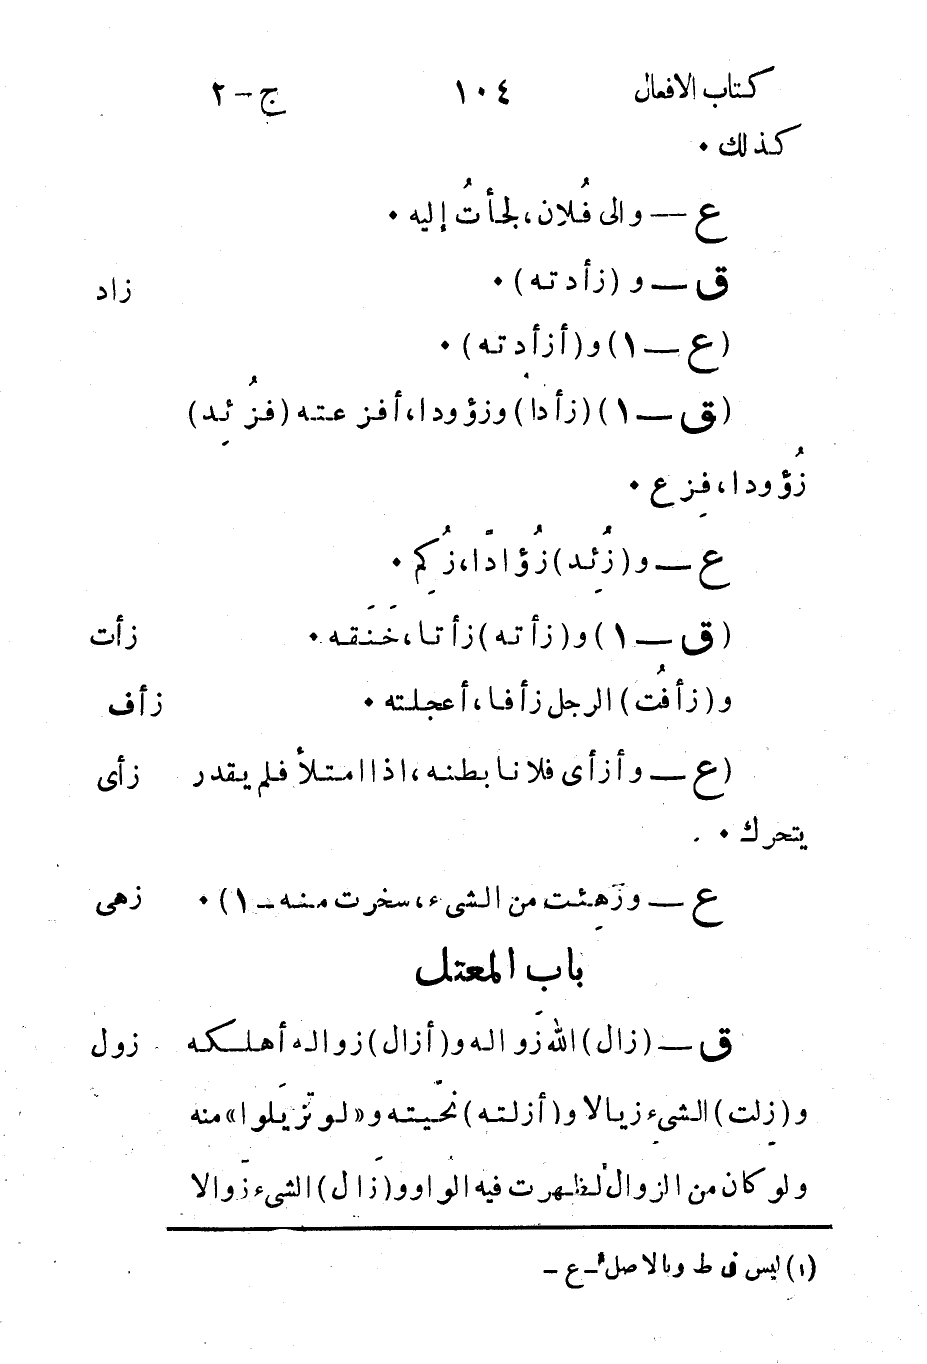 كتاب الافعال ١٠٤ ج - ٢
كذلك •
ع — والى فُلان، لجأتُ إليه •
ق — و (زأدته) • زاد
(ع — ١) و (أزأدته) •
(ق — ١) (زأدا) وزؤودا، أفزعته (فزُئِد)
زُؤودا، فزِع •
ع — و (زُئِد) زُؤادًا، زُكِم •
(ق — ١) و (زأته) زأتا، خَنَقه • زأت
و (زأفُت) الرجل زأفا، أعجلته • زأف
(ع — وأزأى فلانا بطنه، اذا امتلأ فلم يقدر زأى
يتحرك •
ع — وزَهِئت من الشىء، سخرت منه - ١) • زهى
باب المعتل
ق — (زال) الله زَواله و (أزال) زواله أهلكه زول
و (زِلت) الشىءِ زيالا و (أزلته) نحّيته و «لو تزَيلوا» منه
ولو كان من الزوال لظهرت فيه الواو و (زَال) الشىء زَوالا
(١) ليس فى ط وبالاصل - ع -